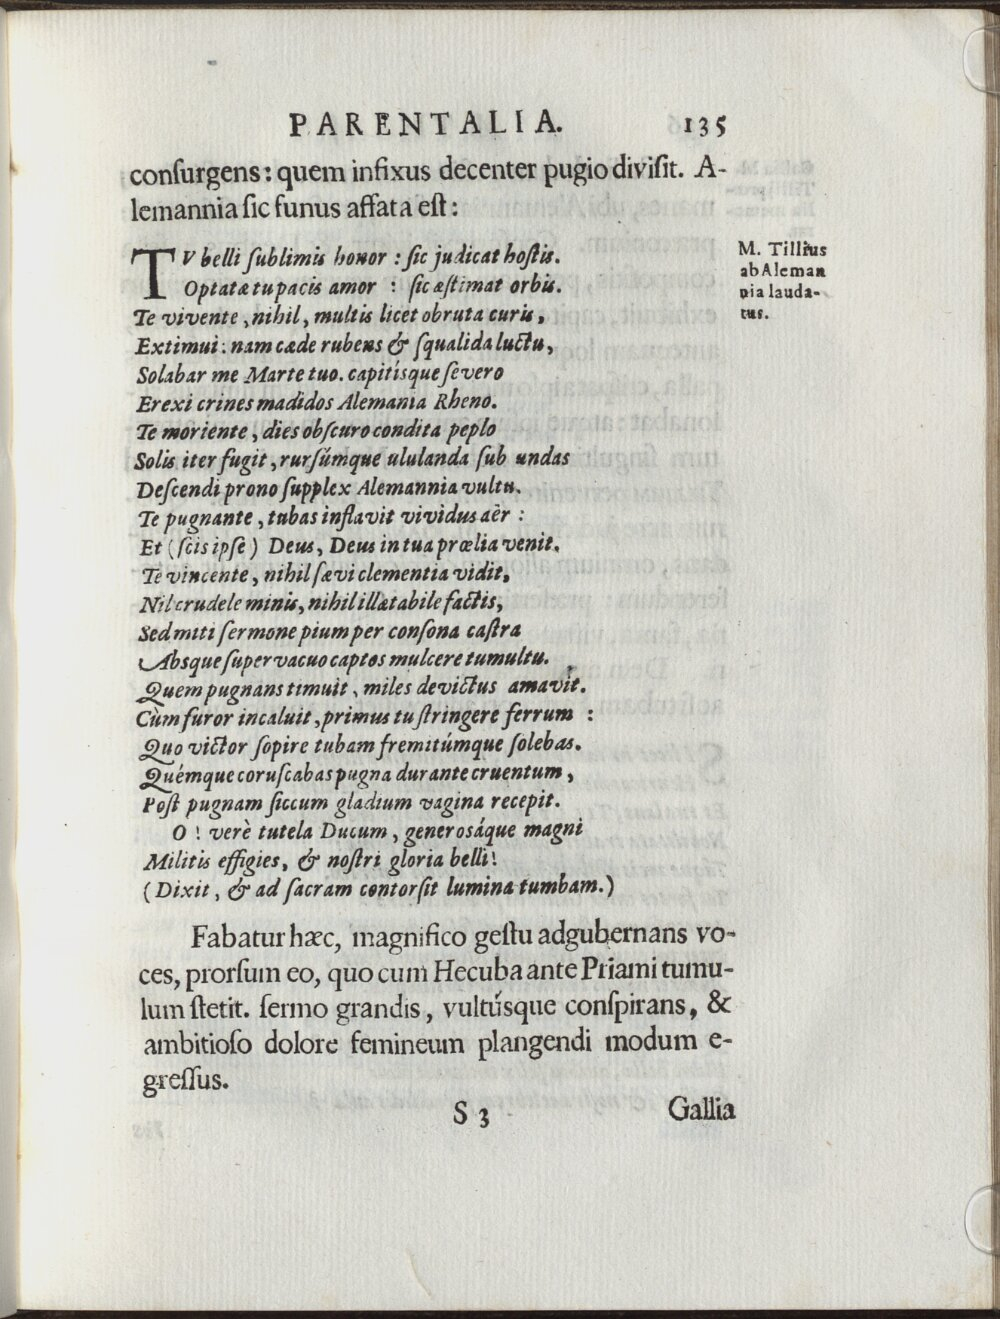 PARENTALIA. 135
conſurgens: quem infixus decenter pugio diviſit. A-
lemannia ſic funus affata eſt:
TV belli ſublimis honor : ſic judicat hoſtis.
Optatæ tu pacis amor : ſic æſtimat orbis.
Te vivente, nihil, multis licet obruta curis,
Extimui: nam cæde rubens & ſqualida luctu,
Solabar me Marte tuo. capitíſque ſevero
Erexi crines madidos Alemania Rheno.
Te moriente, dies obſcuro condita peplo
Solis iter fugit, rurſúmque ululanda ſub undas
Deſcendi prono ſupplex Alemannia vultu.
Te pugnante, tubas inflavit vividus aër :
Et (ſcis ipſe) Deus, Deus in tua prœlia venit.
Te vincente, nihil ſævi clementia vidit,
Nil crudele minis, nihil illætabile factis,
Sed miti ſermone pium per conſona caſtra
Absque ſupervacuo captos mulcere tumultu.
Quem pugnans timuit, miles devictus amavit.
Cùm furor incaluit, primus tu ſtringere ferrum :
Quo victor ſopire tubam fremitúmque ſolebas.
Quémque coruſcabas pugna durante cruentum,
Poſt pugnam ſiccum gladium vagina recepit.
O! verè tutela Ducum, generosáque magni
Militis effigies, & noſtri gloria belli!
(Dixit, & ad ſacram contorſit lumina tumbam.)
M. Tillius
ab Aleman
nia lauda-
tus.
Fabatur hæc, magnifico geſtu adgubernans vo-
ces, prorſum eo, quo cum Hecuba ante Priami tumu-
lum ſtetit. ſermo grandis, vultúsque conſpirans, &
ambitioſo dolore femineum plangendi modum e-
greſſus.
S 3 Gallia